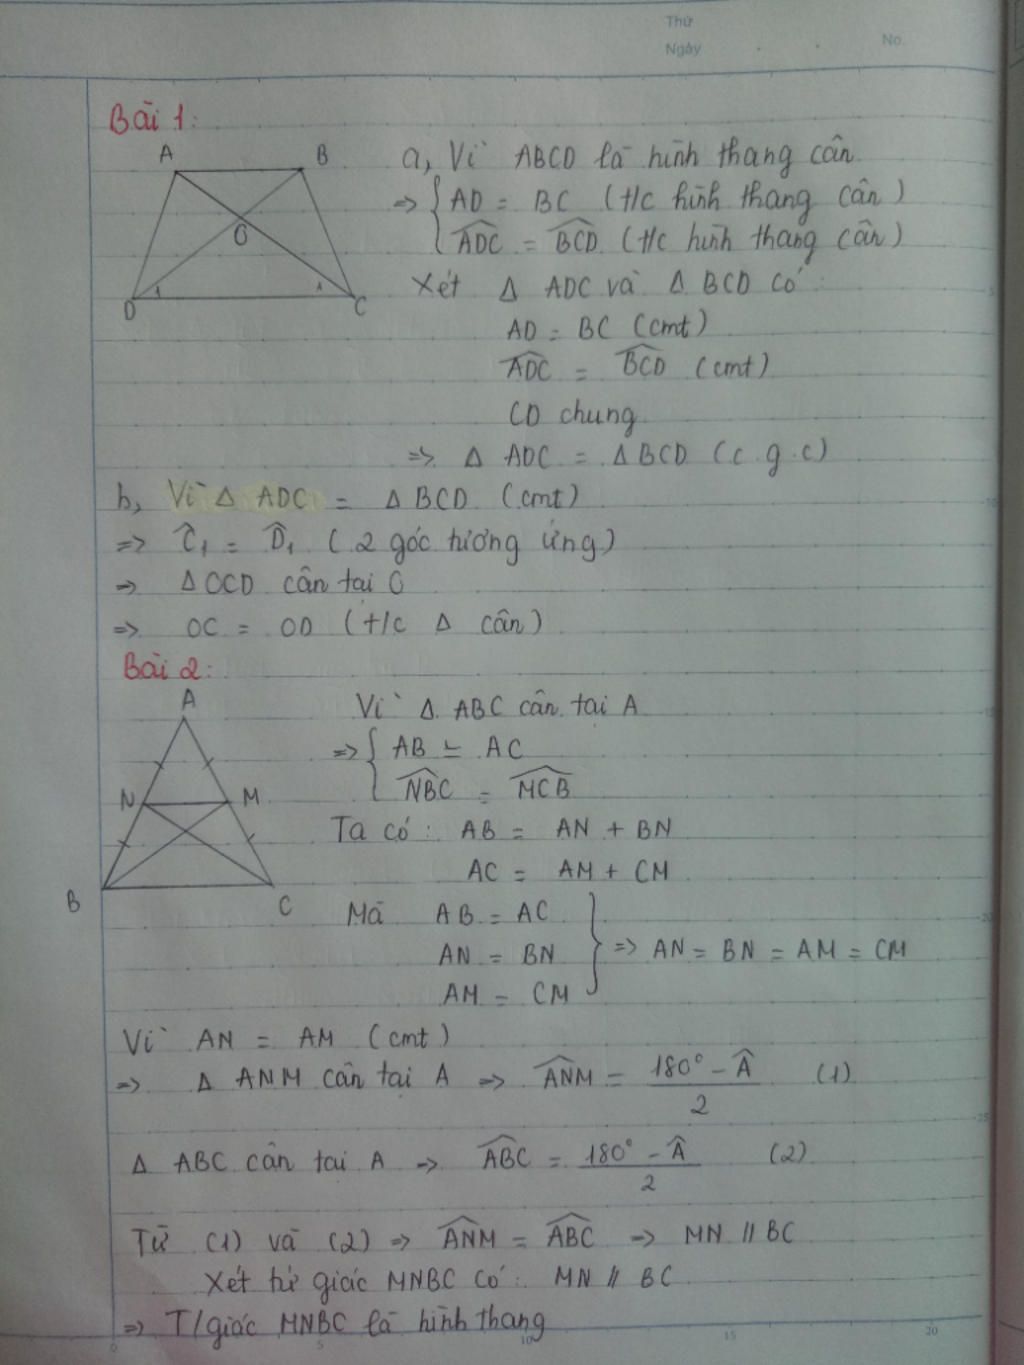 Thứ
Ngày
No.
Bài 1:
A
B
O
D
1
1
C
a, Vì ABCD là hình thang cân
=> { AD = BC (t/c hình thang cân)
{ ADC = BCD (t/c hình thang cân)
Xét Δ ADC và Δ BCD có
AD = BC (cmt)
ADC = BCD (cmt)
CD chung
=> Δ ADC = Δ BCD (c.g.c)
b, Vì Δ ADC = Δ BCD (cmt)
=> Ĉ₁ = D̂₁ (2 góc tương ứng)
=> Δ OCD cân tại O
=> OC = OD (t/c Δ cân)
Bài 2:
A
N
M
B
C
Vì Δ ABC cân tại A
=> { AB = AC
{ NBC = MCB
Ta có: AB = AN + BN
AC = AM + CM
Mà AB = AC
AN = BN } => AN = BN = AM = CM
AM = CM
Vì AN = AM (cmt)
=> Δ ANM cân tại A => ANM = (180° - Â)/2 (1)
Δ ABC cân tại A => ABC = (180° - Â)/2 (2)
Từ (1) và (2) => ANM = ABC => MN // BC
Xét tứ giác MNBC có: MN // BC
=> T/giác MNBC là hình thang
0 5 10 15 20